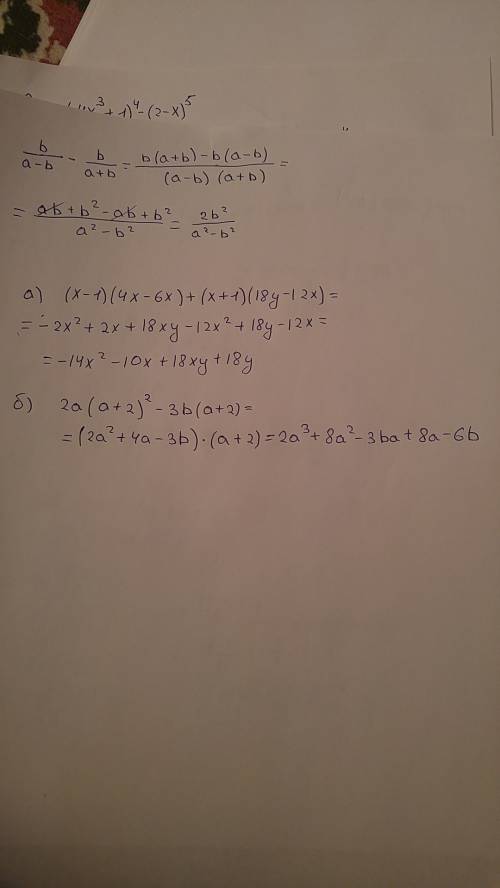 ³+1)⁴-(2-x)⁵
b/(a-b) - b/(a+b) = (b(a+b)-b(a-b))/((a-b)(a+b)) =
= (ab+b²-ab+b²)/(a²-b²) = 2b²/(a²-b²)
а) (x-1)(4x-6x)+(x+1)(18y-12x)=
=-2x²+2x+18xy-12x²+18y-12x=
=-14x²-10x+18xy+18y
б) 2a(a+2)²-3b(a+2)=
=(2a²+4a-3b)·(a+2)=2a³+8a²-3ba+8a-6b